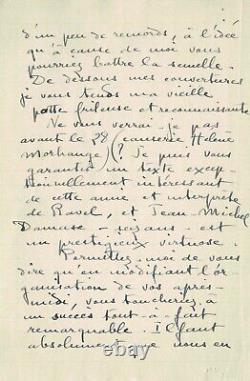 d'un peu de remords, à l'idée
qu'à cause de moi vous
pourriez battre la semelle.
De dessous mes couvertures
je vous tends ma vieille
patte frileuse et reconnaissante
Ne vous verrai-je pas
avant le 28 (causerie Hélène
Morhange)? Je puis vous
garantir un texte excep-
tionnellement intéressant
de cette amie et interprète
de Ravel, et Jean-Michel
Damase - 20 ans - est
un prestigieux virtuose.
Permettez-moi de vous
dire qu'en modifiant l'or-
ganisation de vos après-
midi, vous toucheriez à
un succès tout-à-fait
remarquable. Il faut
absolument que nous en
ebay